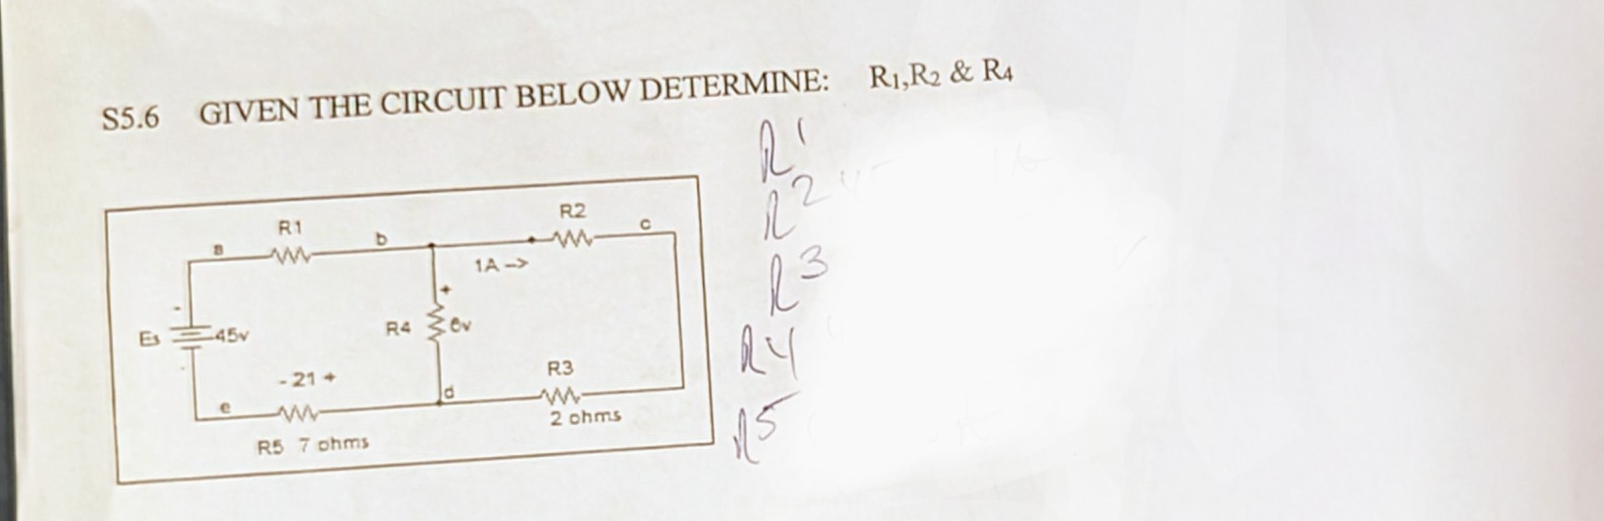 S5.6 GIVEN THE CIRCUIT BELOW DETERMINE: R1,R2 & R4
R1
R2
R3
R4
R5
R1
R2
a
b
c
1A ->
-
+
Es
45v
R4
6v
- 21 +
R3
d
e
2 ohms
R5 7 ohms